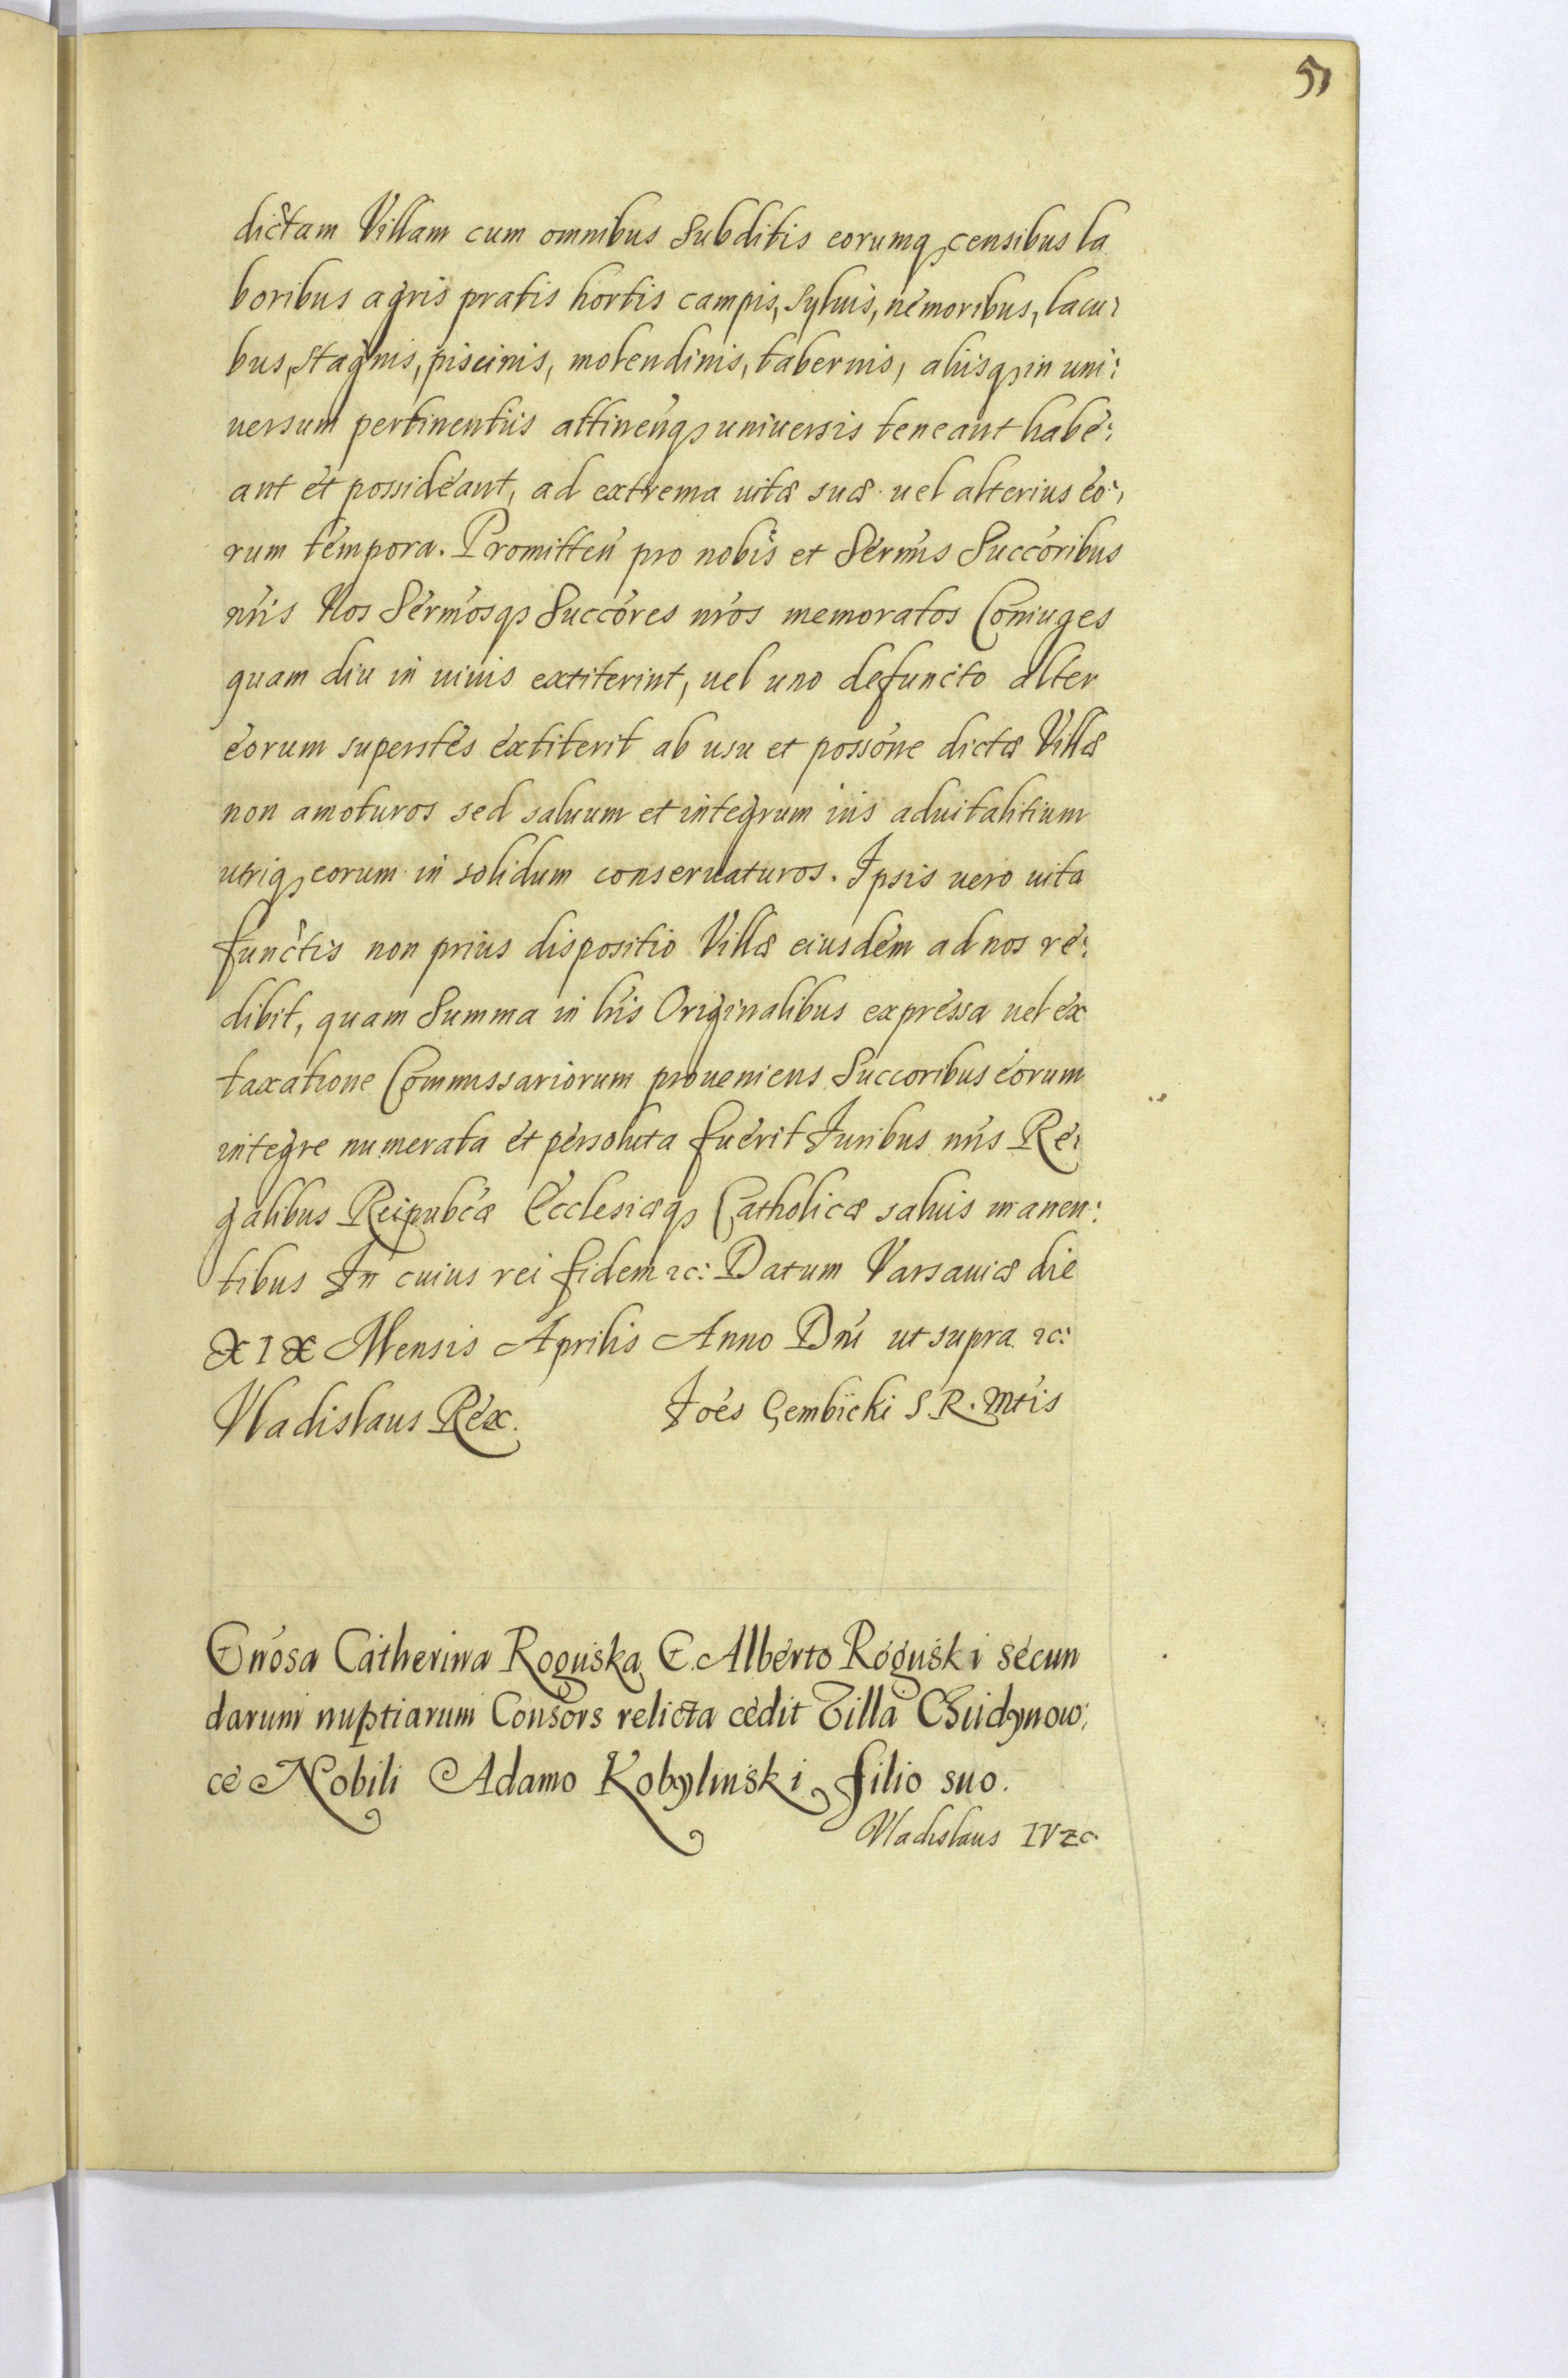 51
dictam Villam cum omnibus Subditis eorumq; censibus la
boribus agris pratis hortis campis, Syluis, nemoribus, lacu:
bus, stagnis, piscinis, molendinis, tabernis, aliisq; in uni:
uersum pertinentiis attinen̄q; uniuersis teneant habe:
ant et possideant, ad extrema uitæ suæ uel alterius eo:
rum tempora. Promitten̄ pro nobis et Serm̄is Succōribus
nr̄is Nos Serm̄osq; Succōres nr̄os memoratos Coniuges
quam diu in uiuis extiterint, uel uno defuncto alter
eorum superstes extiterit ab usu et possōne dictæ Villæ
non amoturos sed saluum et integrum ius aduitalitium
utriq; eorum in solidum conseruaturos. Ipsis uero uita
functis non prius dispositio Villæ eiusdem ad nos re:
dibit, quam Summa in lr̄is Originalibus expressa uel ex
taxatione Commissariorum proueniens Succoribus eorum
integre numerata et persoluta fuerit Iuribus nr̄is Re:
galibus Reipub̄cæ Ecclesiæq; Catholicæ saluis manen:
tibus In cuius rei fidem ꝛc: Datum Varsauiæ die
XIX Mensis Aprilis Anno Dn̄i ut supra ꝛc:
Vladislaus Rex. Joēs Gembicki S. R. Mt̄is
Gn̄osa Catherina Roguska G. Alberto Roguski secun
darum nuptiarum Consors relicta cedit Villa Chudynow:
ce Nobili Adamo Kobylinski filio suo.
Vladislaus IV ꝛc.